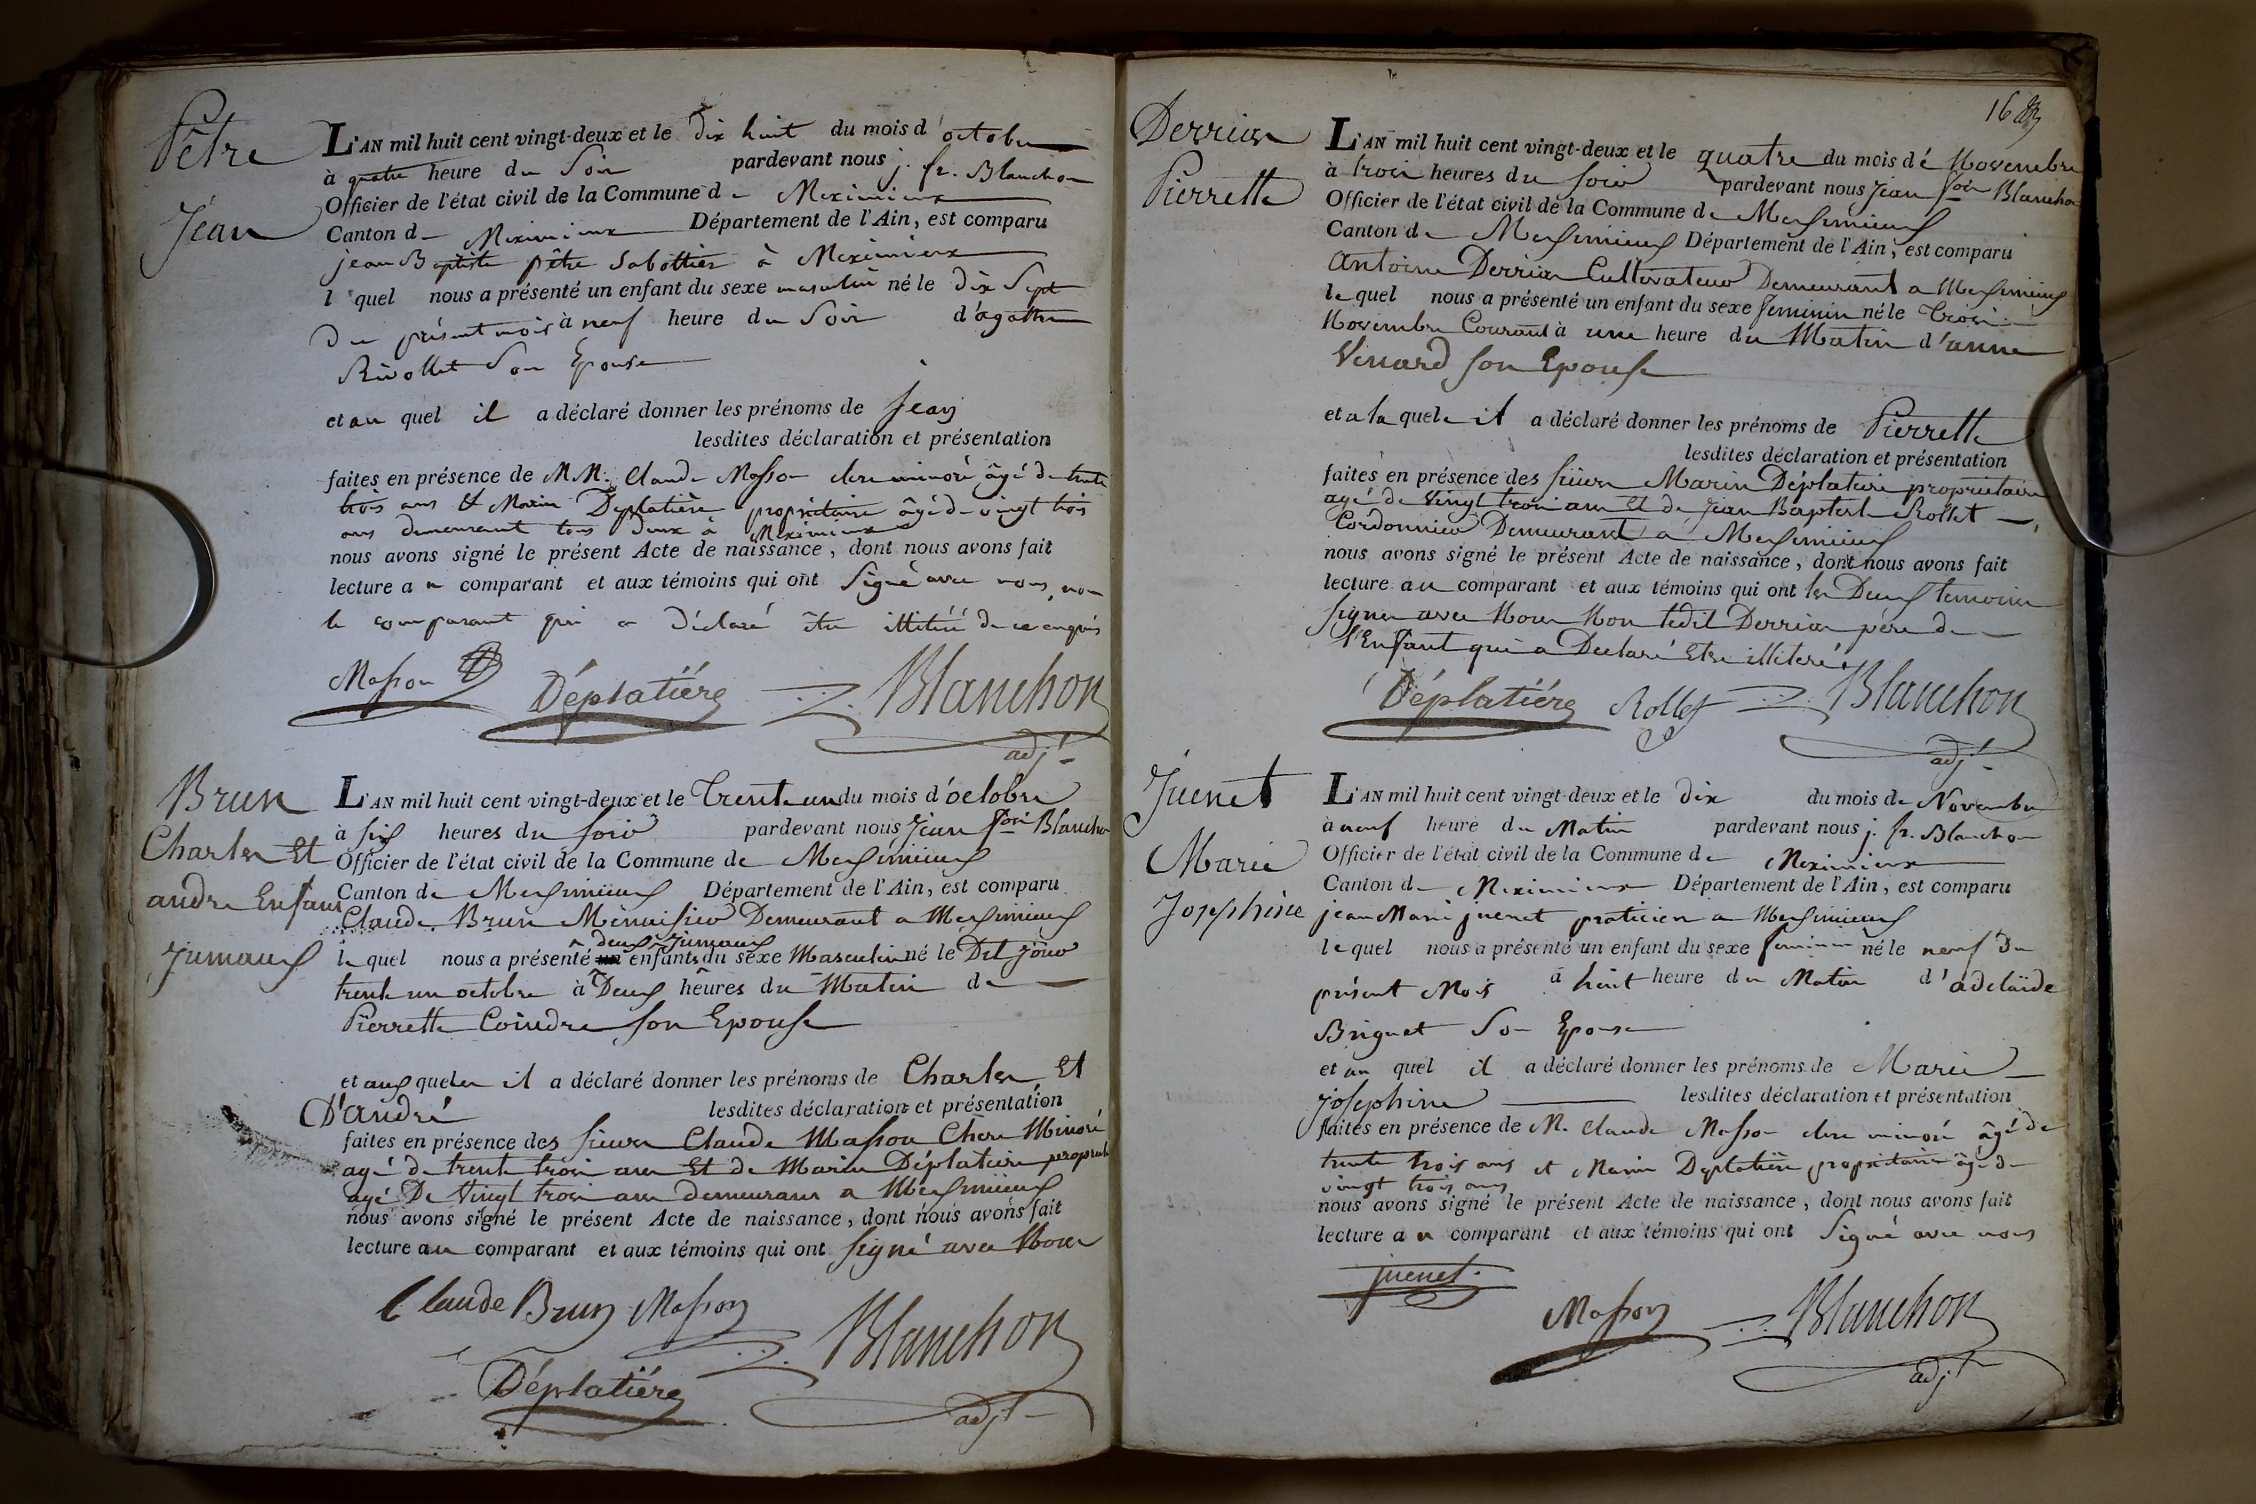 Pêtre
Jéan
L'AN mil huit cent vingt-deux et le dix huit du mois d'octobre
à quatre heure du Soir pardevant nous j. fr. Blanchon
Officier de l'état civil de la Commune de Meximieux
Canton de Meximieux Département de l'Ain, est comparu
jean Baptiste pêtre Sabottier à Meximieux
l quel nous a présenté un enfant du sexe masculin né le dix Sept
Du présent mois à neuf heure du Soir d'agathe
Rivollet Son Epouse
et au quel il a déclaré donner les prénoms de Jean
lesdites déclaration et présentation
faites en présence de M.M. Claude Masson clerc minoré âgé de trente
trois ans & Marin Déplatière propriétaire âgé de vingt trois
ans demeurant tous deux à Meximieux
nous avons signé le présent Acte de naissance, dont nous avons fait
lecture au comparant et aux témoins qui ont Signé avec nous, non
le comparant qui a déclaré être illitéré de ce enquis
Masson Déplatiére Blanchon
adj.t
Brun
Charles Et
andre Enfans
Jumaux
L'AN mil huit cent vingt-deux et le Trente un du mois d'octobre
à six heures du soir pardevant nous Jean fois Blanchon
Officier de l'état civil de la Commune de Meximieux
Canton de Meximieux Département de l'Ain, est comparu
Claude Brun Ménuisier Demeurant a Meximieux
deux Jumaux
le quel nous a présenté un enfants du sexe Masculin né le Dit jour
trente un octobre à Deux heures du Matin de
Pierrette Coindre son Epouse
et aux queles il a déclaré donner les prénoms de Charles Et
D'andré
lesdites déclaration et présentation
faites en présence des sieurs Claude Masson Clerc Minoré
agé de trente trois ans Et de Marin Déplatiere propriete
agé De Vingt trois ans demeurans a Meximieux
nous avons signé le présent Acte de naissance, dont nous avons fait
lecture au comparant et aux témoins qui ont signé avec Nous
Claude Brun Masson Blanchon
Déplatiére adj.t
16
Derrias
Pierrette
L'AN mil huit cent vingt-deux et le quatre du mois dé Novembre
à trois heures du soir pardevant nous Jean fois Blanchon
Officier de l'état civil de la Commune de Meximieux
Canton de Meximieux Département de l'Ain, est comparu
Antoine Derrias Cultivateur Demeurant a Meximieux
le quel nous a présenté un enfant du sexe feminin né le Trois
Novembre Courant à une heure du Matin d'anne
Venard son Epouse
et a la quele il a déclaré donner les prénoms de Pierrette
lesdites déclaration et présentation
faites en présence des sieurs Marin Déplatiere propriétaire
agé de Vingt trois ans Et de Jean Baptiste Rollet
Cordonnier Demeurant a Meximieux
nous avons signé le présent Acte de naissance, dont nous avons fait
lecture au comparant et aux témoins qui ont les Deux temoins
signer avec Nous Non ledit Derrias père de
l'Enfant qui a Declaré Etre illiteré
Déplatiére Rollet Blanchon
adj.t
Juenet
Marie
Josephine
L'AN mil huit cent vingt-deux et le dix du mois de Novembre
à neuf heure du Matin pardevant nous j. fr. Blanchon
Officier de l'état civil de la Commune de Meximieux
Canton de Meximieux Département de l'Ain, est comparu
jean Marie juenet praticien a Meximieux
le quel nous a présenté un enfant du sexe feminin né le neuf du
présent Mois à huit heure du Matin d'adelaïde
Briguet Son Epouse
et au quel il a déclaré donner les prénoms de Marie
josephine lesdites déclaration et présentation
faites en présence de M. Claude Masson clerc minoré âgé de
trente trois ans et Marin Déplatière propriétaire âgé de
vingt trois ans
nous avons signé le présent Acte de naissance, dont nous avons fait
lecture au comparant et aux témoins qui ont Signé avec nous
juenet
Masson Blanchon
adj.t